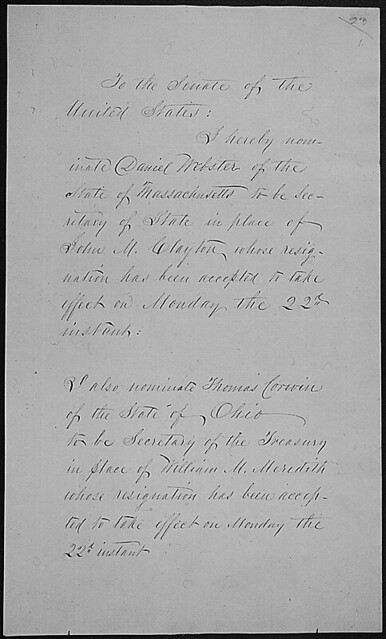 23
1.
To the Senate of the
United States:
I hereby nom-
inate Daniel Webster of the
State of Massachusetts to be Sec-
retary of State in place of
John M. Clayton, whose resig-
nation has been accepted to take
effect on Monday the 22d
instant:
I also nominate Thomas Corwin
of the State of Ohio
to be Secretary of the Treasury
in place of William M. Meredith
whose resignation has been accep-
ted to take effect on Monday the
22d instant